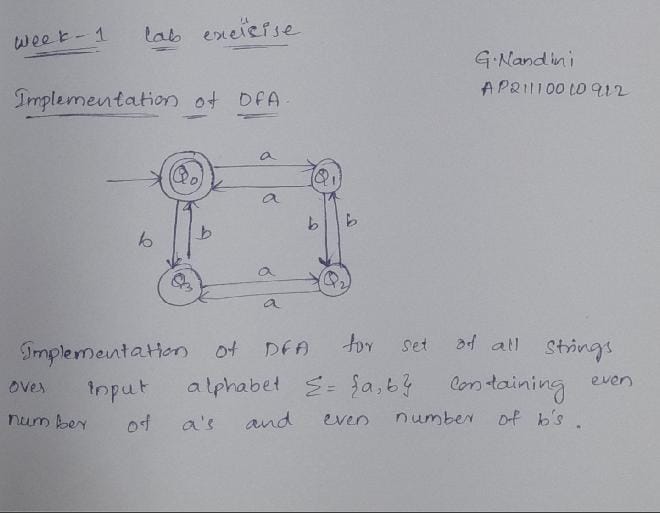 Week-1 lab exercise
G.Nandini
AP21110010912
Implementation of DFA.
a
Q0
Q1
a
b
b
b
b
a
Q3
Q2
a
Implementation of DFA for set of all strings
over input alphabet Σ= {a,b} Containing even
number of a's and even number of b's.